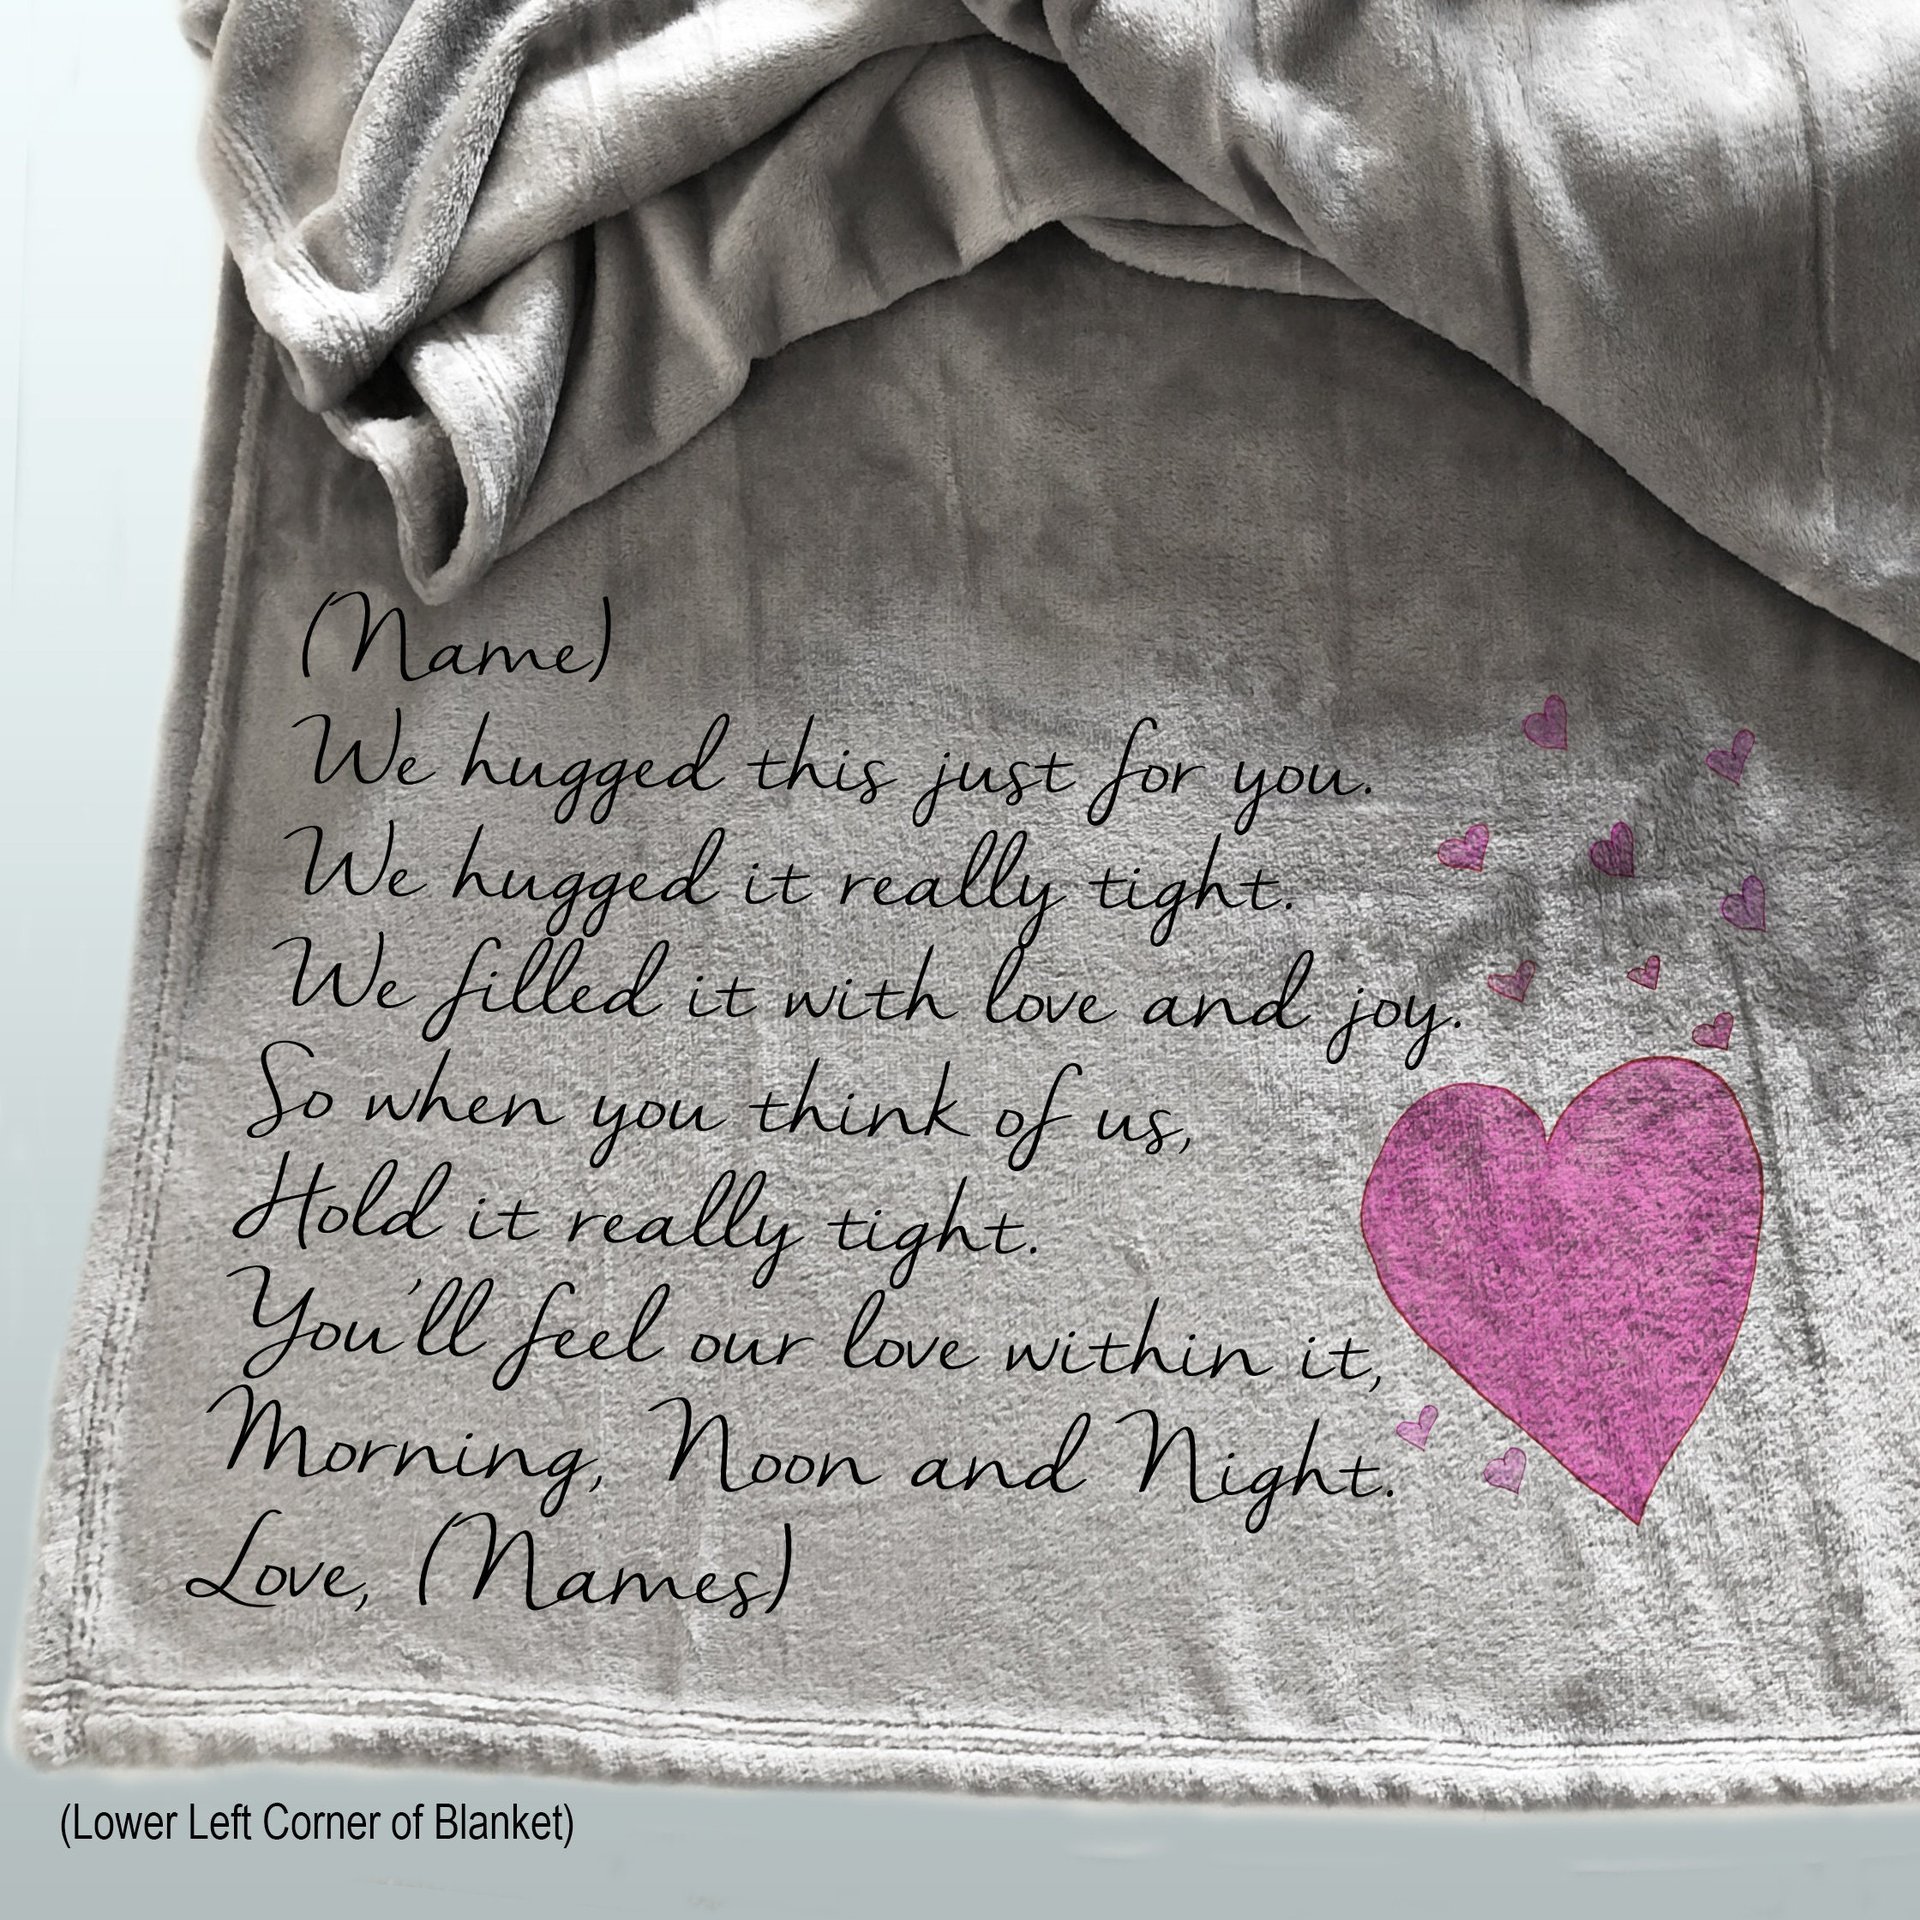 (Name)
We hugged this just for you.
We hugged it really tight.
We filled it with love and joy.
So when you think of us,
Hold it really tight.
You'll feel our love within it,
Morning, Noon and Night.
Love, (Names)
(Lower Left Corner of Blanket)